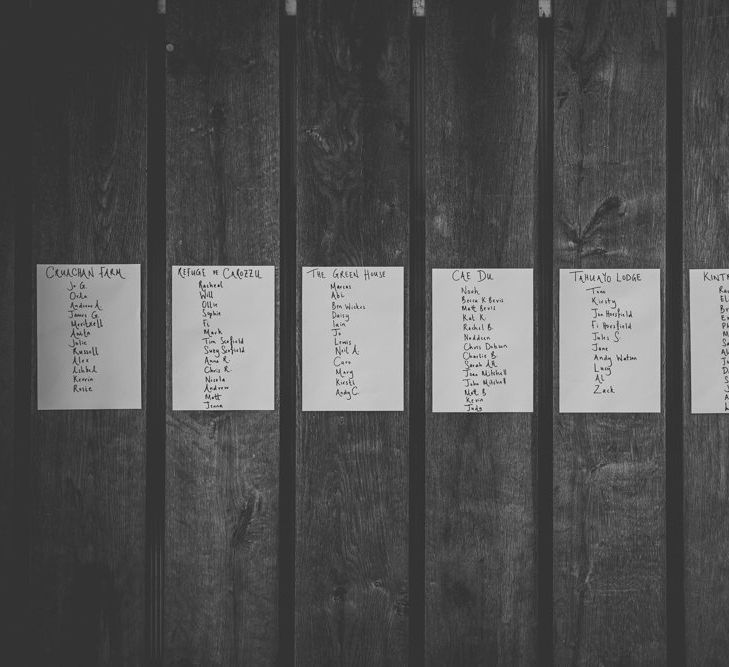 CRUACHAN FARM
Jo G.
Orla
Andrew A.
James G.
Meritxell
Anita
Julie
Russell
Alex
Kerrin
Rosie
REFUGE DE CAROZZU
Racheal
Will
Ollie
Sophie
Fi
Mark
Tim Scofield
Suzy Scofield
Anna R.
Chris R.
Nicola
Andrew
Matt
Jenna
THE GREEN HOUSE
Marcus
Abi
Ben Wickes
Daisy
Iain
Jo
Lewis
Neil A.
Caro
Mary
Kirsti
Andy C.
CAE DU
Noah
Becca K Bevis
Matt Bevis
Kat K.
Rachel B.
Chris Dobson
Charlie B.
Sarah AR
Joan Mitchell
John Mitchell
Matt B
Kevin
Judy
TAHUAYO LODGE
Tom
Kirsty
Jon Horsfield
Fi Horsfield
Jules S.
June
Andy Watson
Lucy
Al
Zack